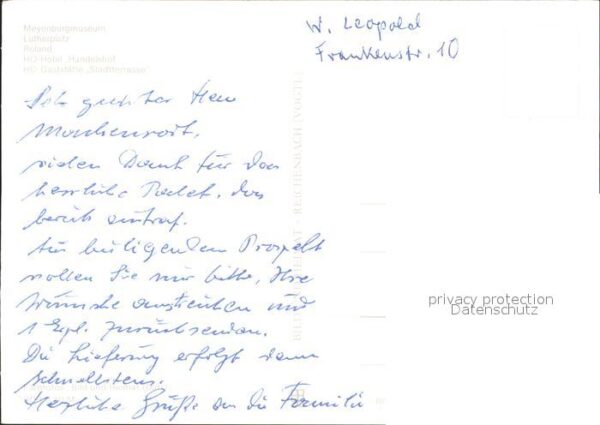 Meyenburgmuseum
Lutherplatz
Roland
HO-Hotel „Handelshof“
HO-Gaststätte „Stadtterrasse“
W. Leopold
Frankenstr. 10
Sehr geehrter Herr
vielen Dank für das
herrliche Paket, das
bereits eintraf.
Im beiliegenden Prospekt
wollen Sie mir bitte, Ihre
Wünsche anstreichen und
1 Expl. zurücksenden.
Die Lieferung erfolgt dann
schnellstens.
Herzliche Grüße an die Familie
REICHENBACH (VOGTL)
privacy protection
Datenschutz